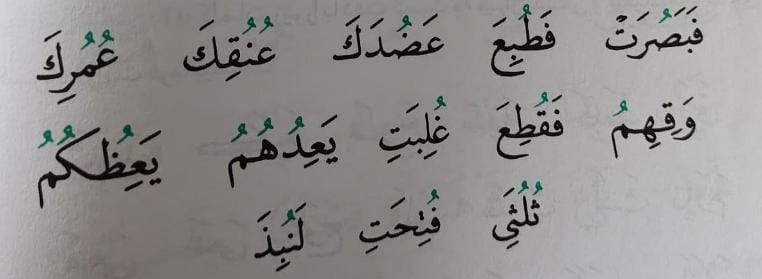 فَبَصُرَتْ فَطُبِعَ عَضُدَكَ عُنُقِكَ عُمُرِكَ
وَقِهِمُ فَقُطِعَ غُلِبَتِ يَعِدُهُمُ يَعِظُكُمُ
ثُلُثَيِ فُتِحَتِ لَنُبِذَ